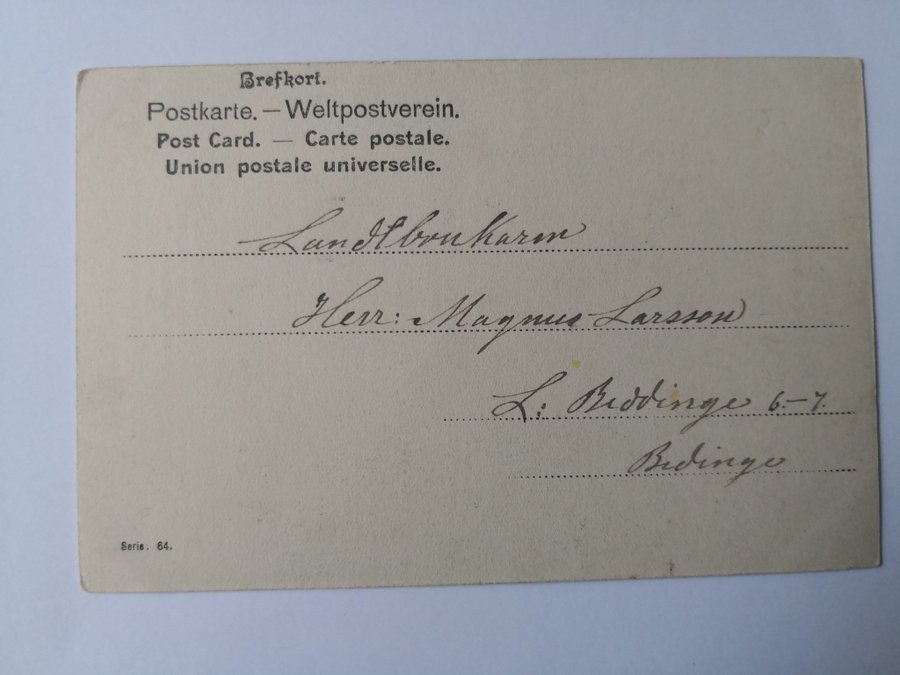 Brefkort.
Postkarte. — Weltpostverein.
Post Card. — Carte postale.
Union postale universelle.
Landtbrukaren
Herr: Magnus Larsson
L: Beddinge 6-7
Bedinge
Serie. 64.